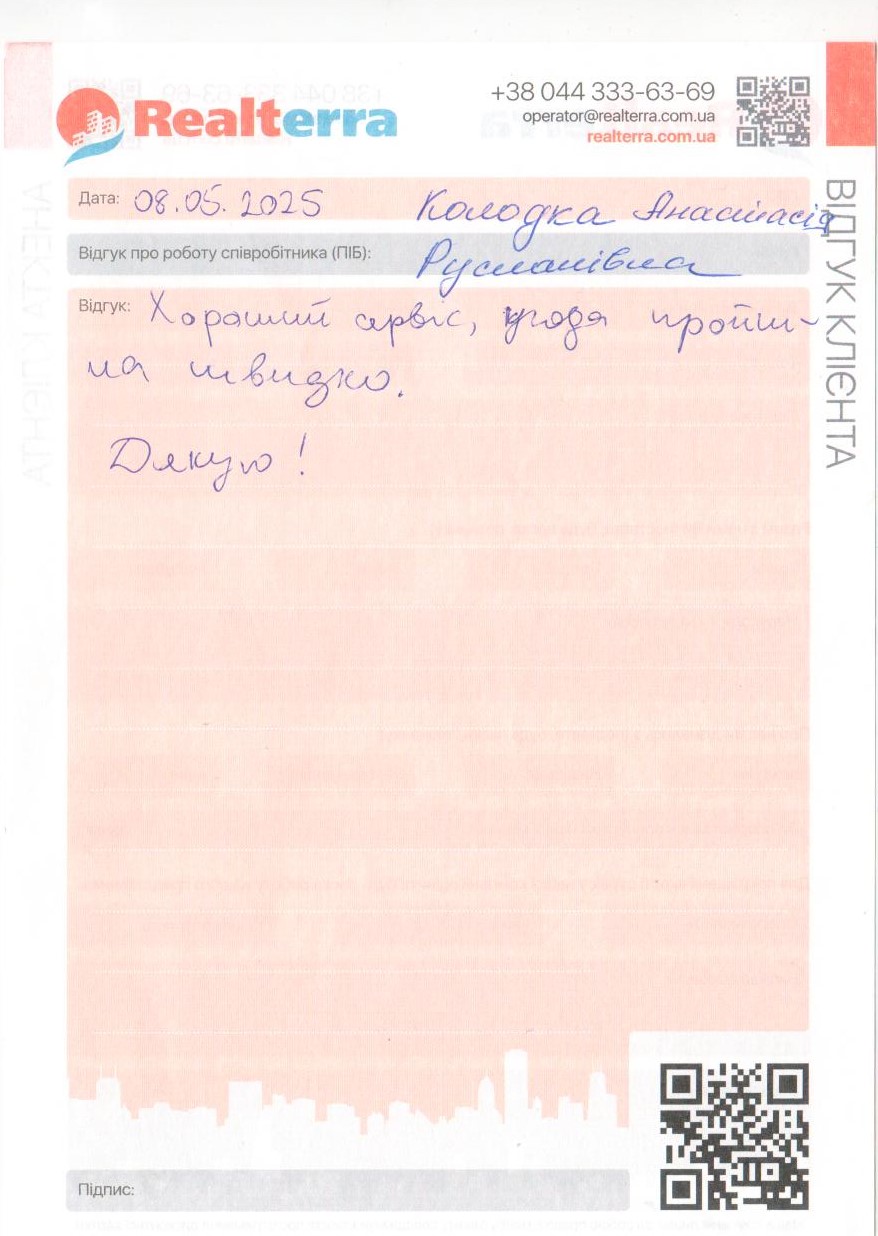 Realterra
+38 044 333-63-69
operator@realterra.com.ua
realterra.com.ua
Дата: 08.05.2025 Колодка Анастасія
Відгук про роботу співробітника (ПІБ): Русланівна
Відгук: Хороший сервіс, угода пройш-
ла швидко.
Дякую!
ВІДГУК КЛІЄНТА
Підпис: